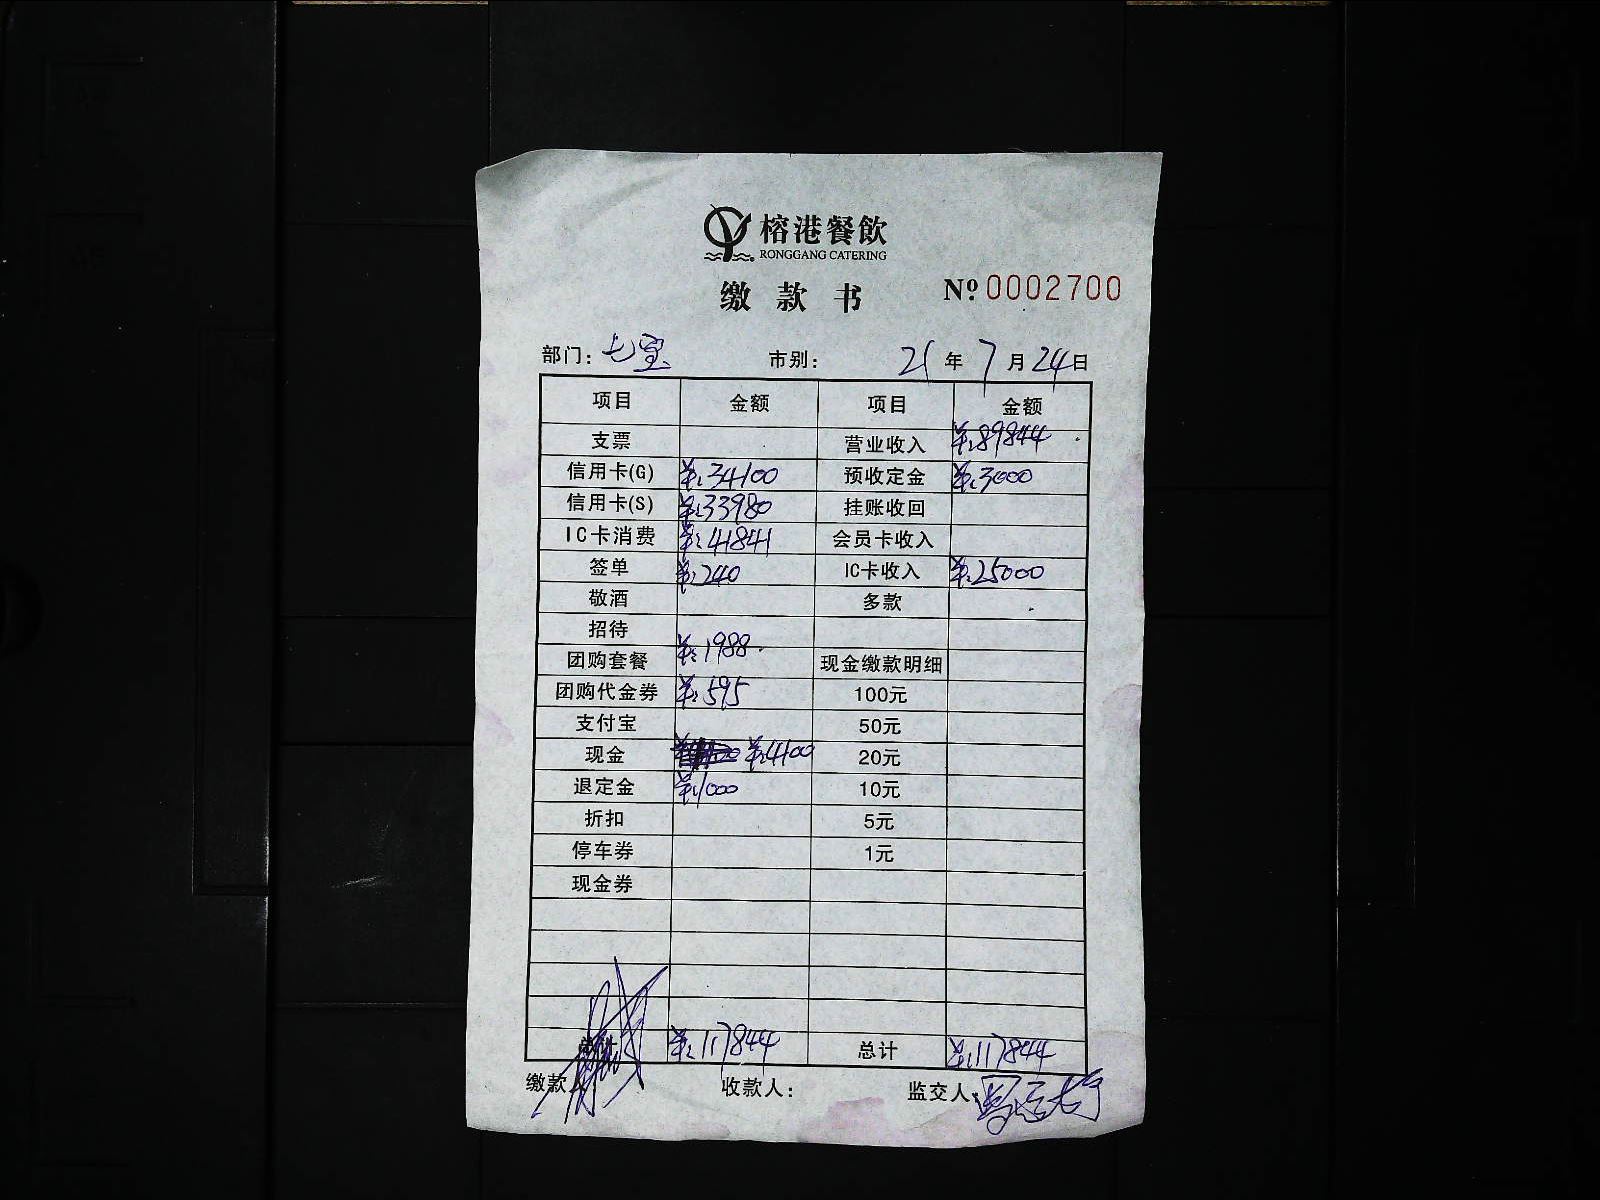 榕港餐飲
RONGGANG CATERING
缴款书 Nº 0002700
部门: 七宝 市别: 21年7月24日
项目 金额 项目 金额
支票 营业收入 ¥:89844
信用卡(G) ¥:34100 预收定金 ¥:3000
信用卡(S) ¥:33980 挂账收回
IC卡消费 ¥:41841 会员卡收入
签单 ¥:240 IC卡收入 ¥:25000
敬酒 多款
招待
团购套餐 ¥:1988 现金缴款明细
团购代金券 ¥:595 100元
支付宝 50元
现金 ¥:4100 20元
退定金 ¥:1000 10元
折扣 5元
停车券 1元
现金券
¥:117844 总计 ¥:117844
缴款人: 收款人: 监交人: